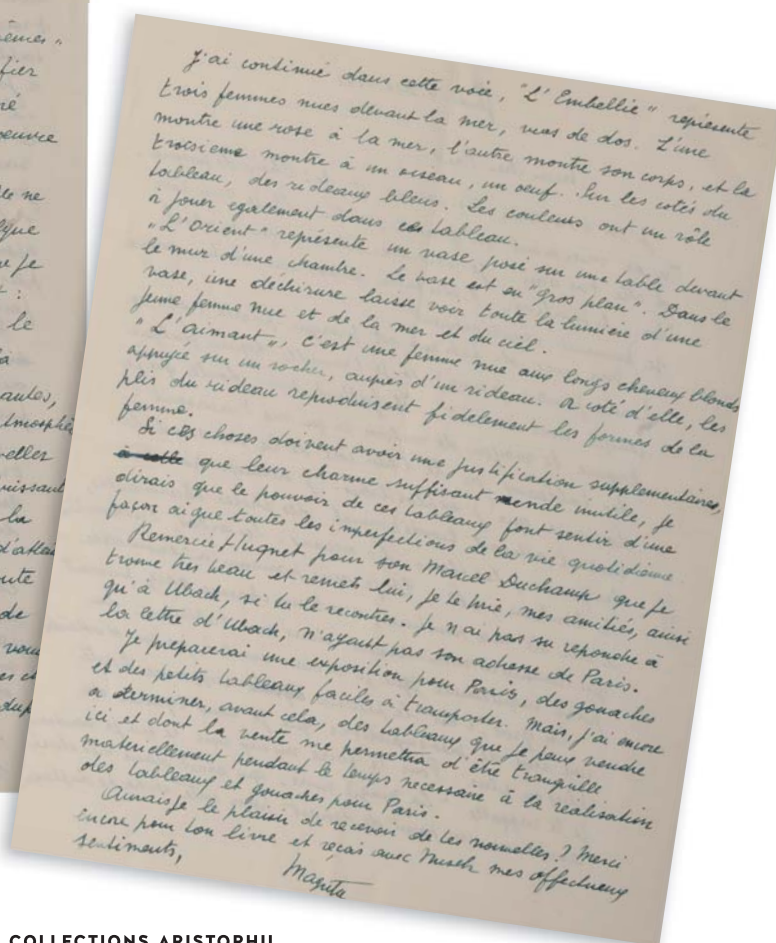 èmes"
fier
ré
oeuvre
le ne
lque
e je
:
le
a
antes,
tmosphè
velles
uissant
la
d'attein
ute
de
vous
es et
dup
J'ai continué dans cette voie, "L'Embellie" représente
trois femmes nues devant la mer, vues de dos. L'une
montre une rose à la mer, l'autre montre son corps, et la
troisieme montre à un oiseau, un oeuf. Sur les cotés du
tableau, des rideaux bleus. Les couleurs ont un rôle
à jouer egalement dans ce tableau.
"L'Orient" représente un vase posé sur une table devant
le mur d'une chambre. Le vase est en "gros plan". Dans le
vase, une déchirure laisse voir toute la lumière d'une
jeune femme nue et de la mer et du ciel.
"L'aimant", c'est une femme nue aux longs cheveux blonds
appuyée sur un rocher, auprès d'un rideau. A coté d'elle, les
plis du rideau reproduisent fidelement les formes de la
femme.
Si ces choses doivent avoir une justification supplementaires,
que leur charme suffisant rende inutile, je
dirais que le pouvoir de ces tableaux font sentir d'une
façon aigue toutes les imperfections de la vie quotidienne.
Remercie Hugnet pour son Marcel Duchamp que je
trouve tres beau et remets lui, je te prie, mes amitiés, ainsi
qu'à Ubach, si tu le recontres. Je n'ai pas su reponche à
la lettre d'Ubach, n'ayant pas son adresse de Paris.
Je préparerai une exposition pour Paris, des gouaches
et des petits tableaux faciles à transporter. Mais, j'ai encore
a terminer, avant cela, des tableaux que je peux vendre
ici et dont la vente me permettra d'être tranquille
materiellement pendant le temps necessaire à la réalisation
des tableaux et gouaches pour Paris.
Aurais-je le plaisir de recevoir de tes nouvelles ? Merci
encore pour ton livre et reçois avec Nusch mes affectueux
sentiments,
Magritte
COLLECTIONS ARISTOPHIL